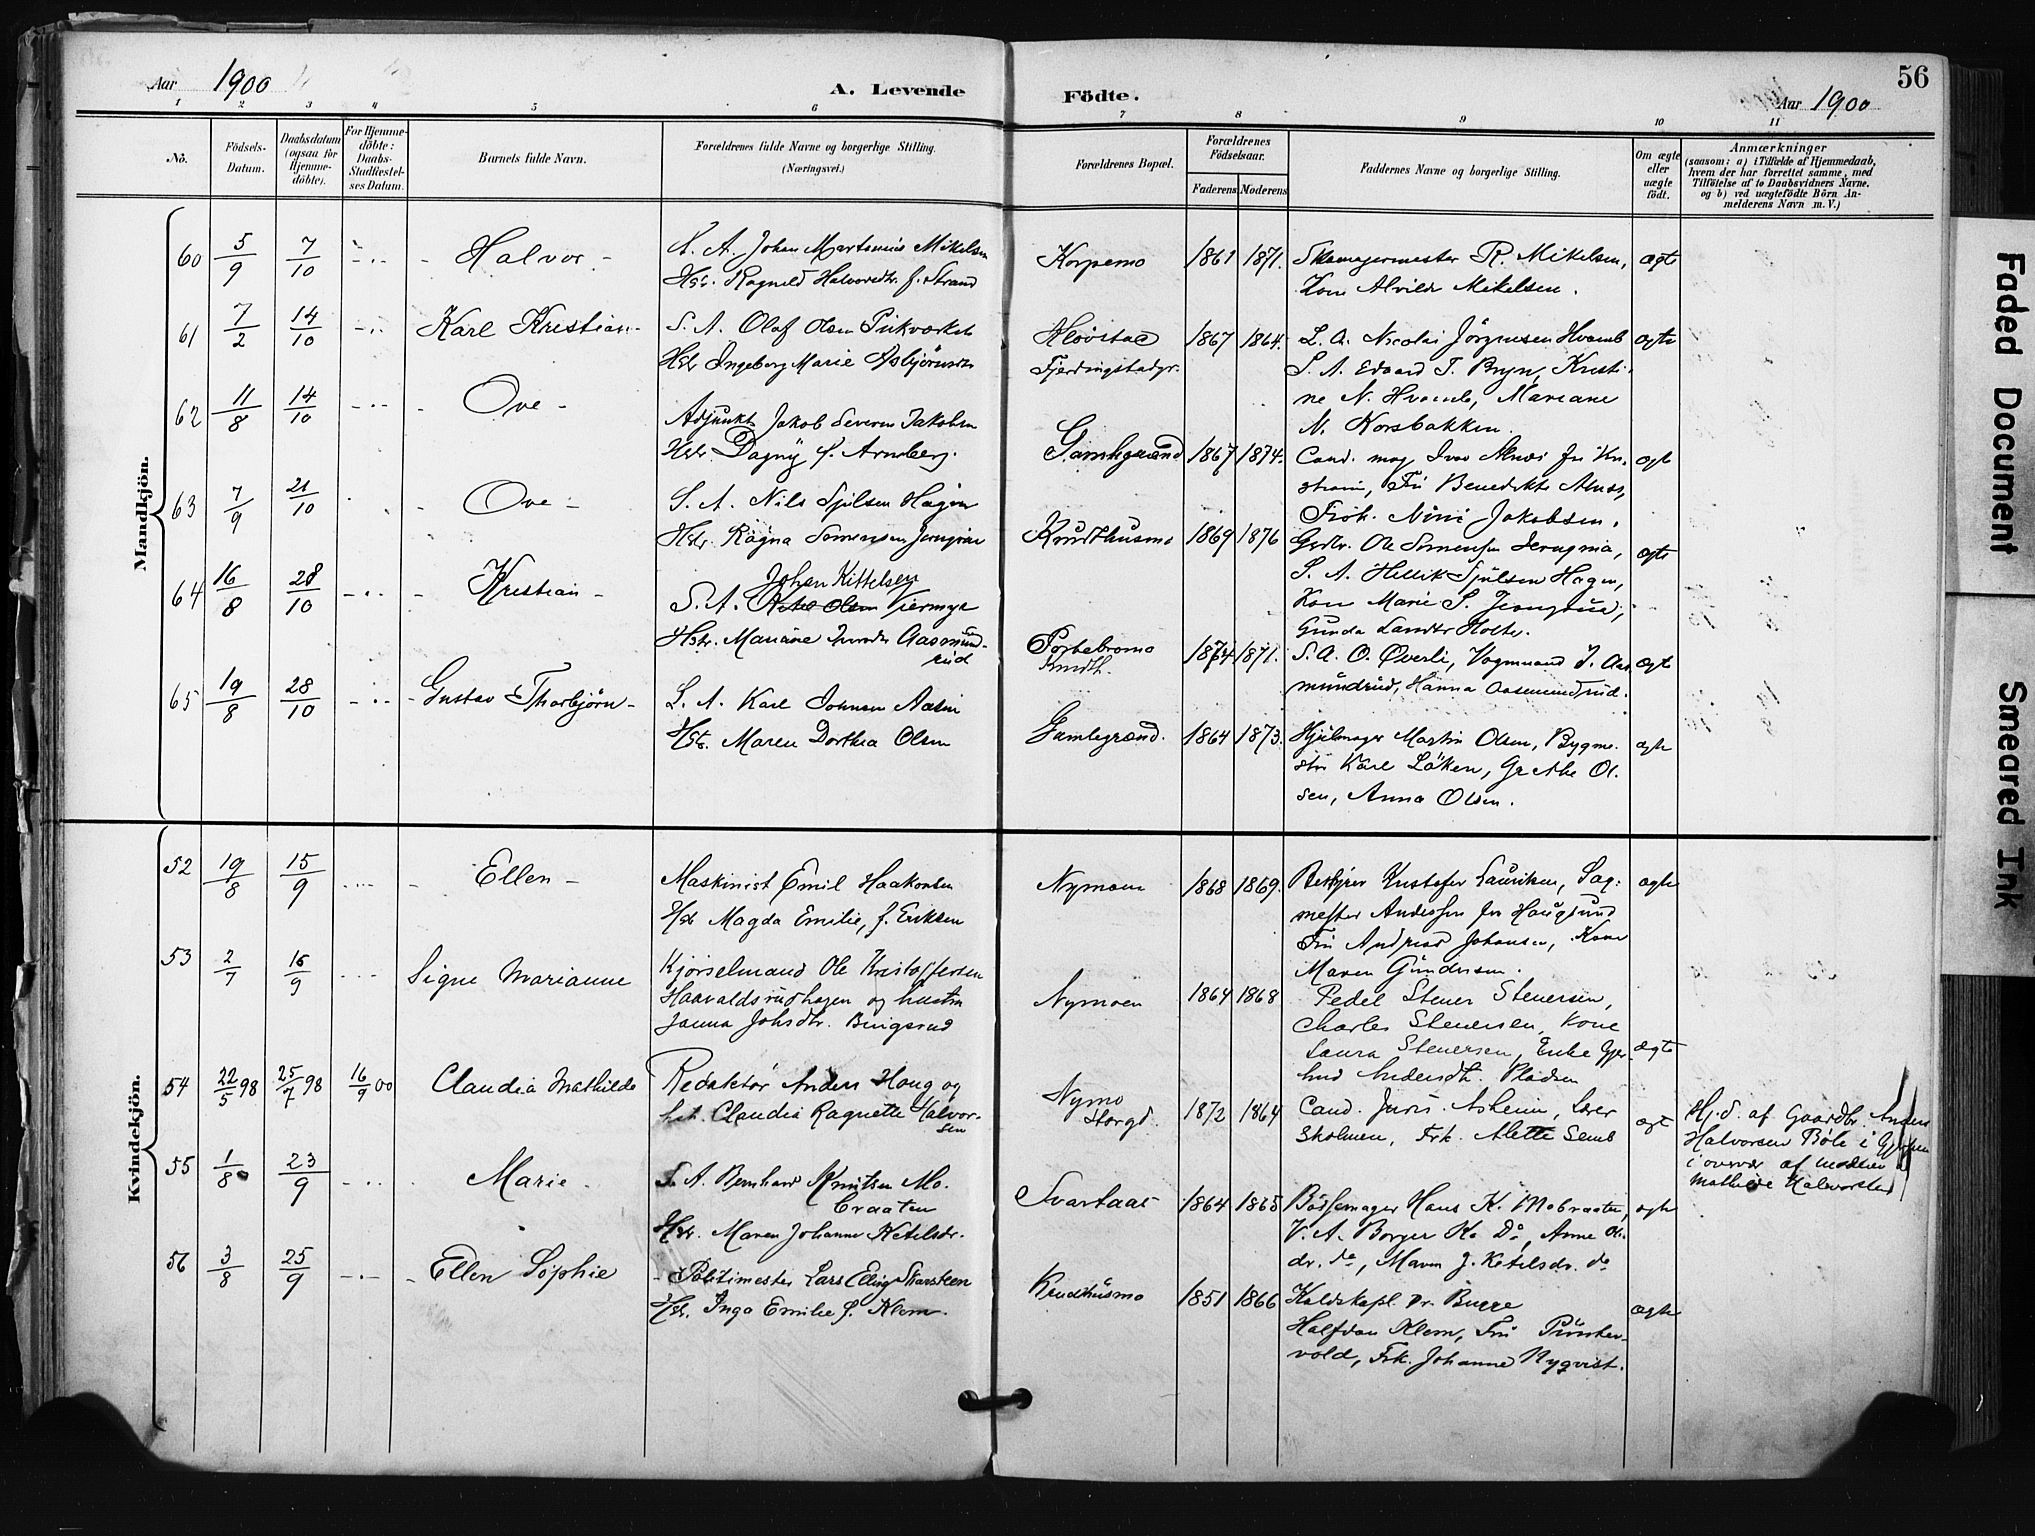 Aar 1900
A. Levende
Födte.
56
Aar 1900
1 2 3 4 5 6 7 8 9 10 11
No.
Födsels-Datum.
Daabsdatum (ogsaa for Hjemme-döbte).
For Hjemme-döbte: Daabs-Stadfestel-ses Datum.
Barnets fulde Navn.
Forældrenes fulde Navne og borgerlige Stilling.
(Næringsvei.)
Forældrenes Bopæl.
Forældrenes Födselsaar.
Faderens Moderens
Faddernes Navne og borgerlige Stilling.
Om ægte eller uægte födt.
Anmærkninger
(saasom: a) i Tilfælde af Hjemmedaab,
hvem der har forrettet samme, med
Tilföielse af to Daabsvidners Navne.
og b) ved uægtefödte Börn An-
melderens Navn m. V.)
Mandkjön.
60 5/9 7/10 Halvor
S. A. Johan Martinius Mikelsen
Hstr. Ragnild Halvorsdtr. f. Strand
Korpemo 1861 1871.
Skomagermester R. Mikelsen,
Kone Alvilde Mikelsen.
ægte
61 7/2 14/10 Karl Kristian
S. A. Olaf Olsen
Hstr Ingeborg Marie Asbjörnsdtr
Fjerdingstadgr. 1867 1864.
L. A. Nicolai Jörgensen Hvamb
S. A. Edvard T. Bryn, Kristi-
ne N. Hvamb, Mariane
N. Korsbakken.
ægte
62 11/8 14/10 Ove
Adjunkt Jakob Severin Jakobsen
Hstr Dagny f. Arneberg.
Gamlegrænd 1867 1874.
Cand. mag Ivar Alnæs fra Kri-
stiania, Fru Benedikte Alnæs,
Frøk. Nini Jakobsen.
ægte
63 7/9 21/10 Ove
S. A. Nils Hagen
Hstr. Ragna Simensen
Knudthusmo 1869 1876
Grdbr. Ole Simensen
S. A. Hellik Hagen,
Kone Marie S.
Gunda Holte.
ægte
64 16/8 28/10 Kristian
Johan Kittelsen
S. A. Olsen Viermyr
Hstr. Mariane Aasmund-
rud
Portebromo
Knudth. 1874 1871.
S. A. O. Øverli, Vognmand J. Aas-
mundrud, Hanna Aasmundrud.
ægte
65 19/8 28/10 Gustav Thorbjörn
L. A. Karl Johnsen Aasen
Hstr. Maren Dorthea Olsen
Gamlegrænd. 1864 1873.
Hjulmager Martin Olsen, Bygme-
ster Karl Löken, Grethe Ol-
sen, Anna Olsen.
ægte
Kvindekjön.
52 19/8 15/9 Ellen
Maskinist Emil Haakonsen
Hstr Magda Emilie, f. Eriksen
Nymoen 1868 1869.
Bestyrer Kristofer Lauritsen, Sag-
mester Anderssen fra Haugsund
Fru Andrea Johansen, Kone
Maren Gundersen.
ægte
53 2/7 16/9 Signe Marianne
Kjörselmand Ole Kristoffersen
Haavaldsrudhagen og hustru
Janna Johsdtr. Bingsrud
Nymoen 1864 1868
Pedel Stener Stenersen,
Charles Stenersen, Kone
Laura Stenersen, Enke Gjer-
trud Andersdtr. Pladsen
ægte
54 22/5 98 25/7 98 16/9 00 Claudia Mathilde
Redaktör Anders Houg og
hst. Claudia Ragnette Halvor-
sen
Nymo
Storgd. 1872 1864
Cand. Juris. Asheim, Lærer
Skolmen, Frk. Alette Semb
ægt
Hj.d. af Gaardbr. Anders
Halvorsen Böle i Gjerpen
i overvær af moderen
Mathilde Halvorsen
55 1/8 23/9 Marie
S. A. Bernhard Knutsen Mo-
braaten
Hstr. Maren Johanne Ketilsdr.
Svartaas 1864 1865
Bössemager Hans K. Mobraaten,
V. A. Borger K. Do, Anne Ol-
dr. do, Maren J. Ketilsdr. do
ægte
56 3/8 25/9 Ellen Sophie
Politimester Lars Elling Skarsteen
Hstr. Inga Emilie f. Klem.
Knudthusmo 1851 1866
Kaldskapl. Dr. Bugge
Halfdan Klem, Fru
vold, Frk. Johanne Nyqvist.
ægte
Faded Document
Smeared Ink